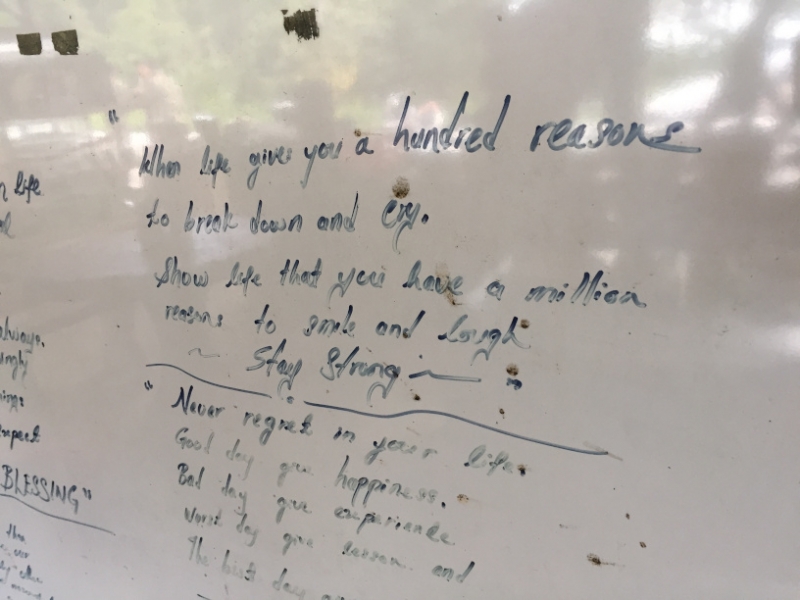 life
always.
expect
BLESSING"
"
When life gives you a hundred reasons
to break down and Cry.
Show life that you have a million
reasons to smile and laugh
~ Stay Strong ~ "
" Never regret in your life.
Good day give happiness.
Bad day give experience
Worst day give lesson and
The best day